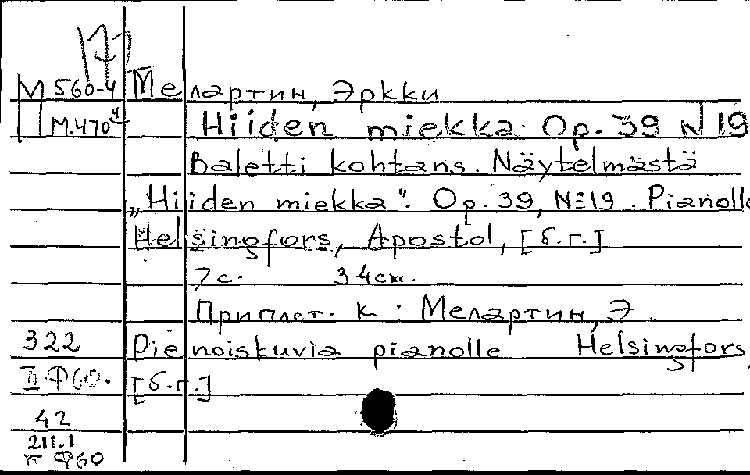 М 560-4 Мелартин, Эркки
М.470 Hiiden miekka. Op. 39 N 19
Baletti kohtans. Näytelmästä
„Hiiden miekka". Op. 39, №19. Pianolle
Helsingfors, Apostol, [б.г.]
7 с. 34 см.
Приплет. к: Мелартин, Э.
322 Pienoiskuvia pianolle Helsingfors,
II Ф60. [б.г.]
42
211.1
п Ф60